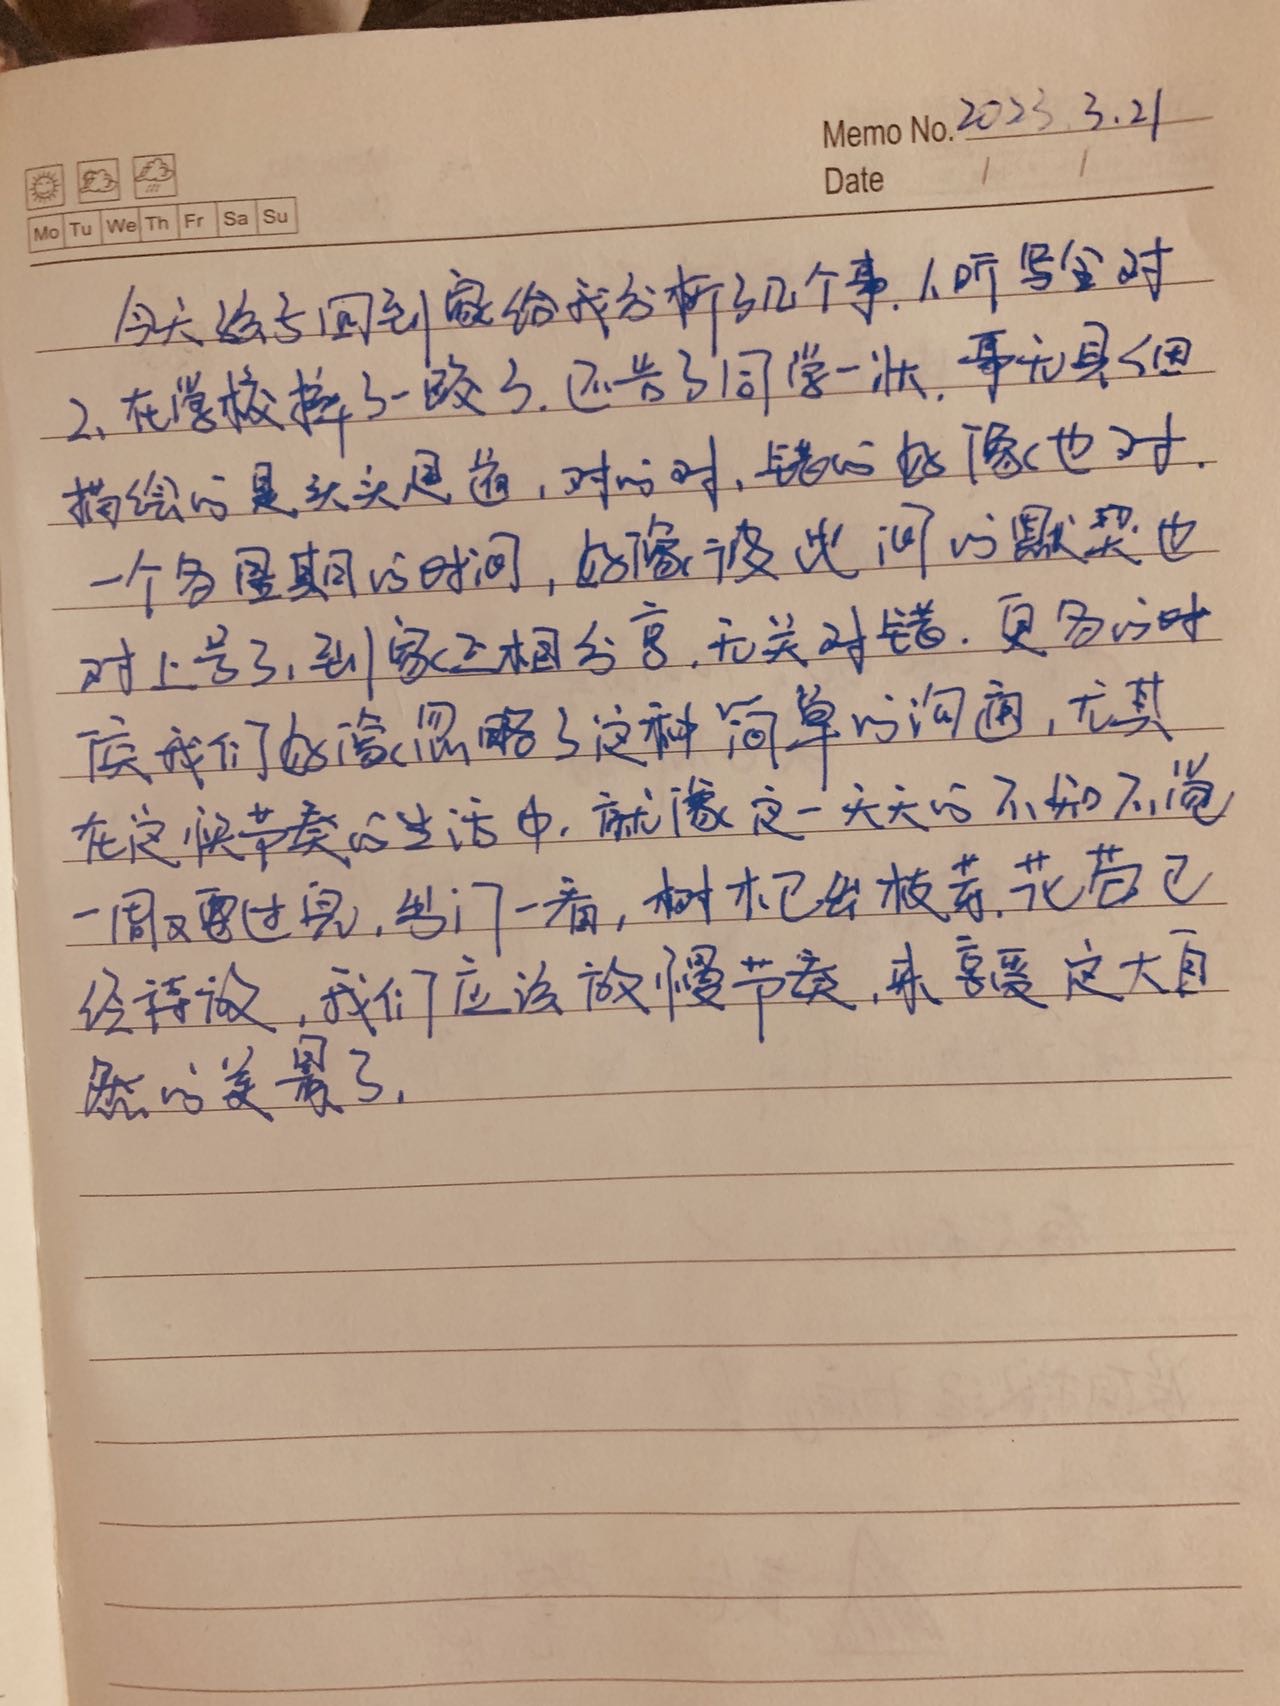 Memo No. 2023.3.21
Date / /
Mo Tu We Th Fr Sa Su
今天孩子回到家给我分析了几个事.1、听写全对
2、在学校摔了一跤了.还告了同学一状.事无具细
描绘的是头头是道,对的对,错的好像也对.
一个多星期的时间,好像彼此间的默契也
对上号了,到家互相分享,无关对错.更多的时
候我们好像忽略了这种简单的沟通,尤其
在这快节奏的生活中.就像这一天天的不知不觉
一周又要过完,出门一看,树木已出枝芽.花苞已
经待放,我们应该放慢节奏,来享受这大自
然的美景了.